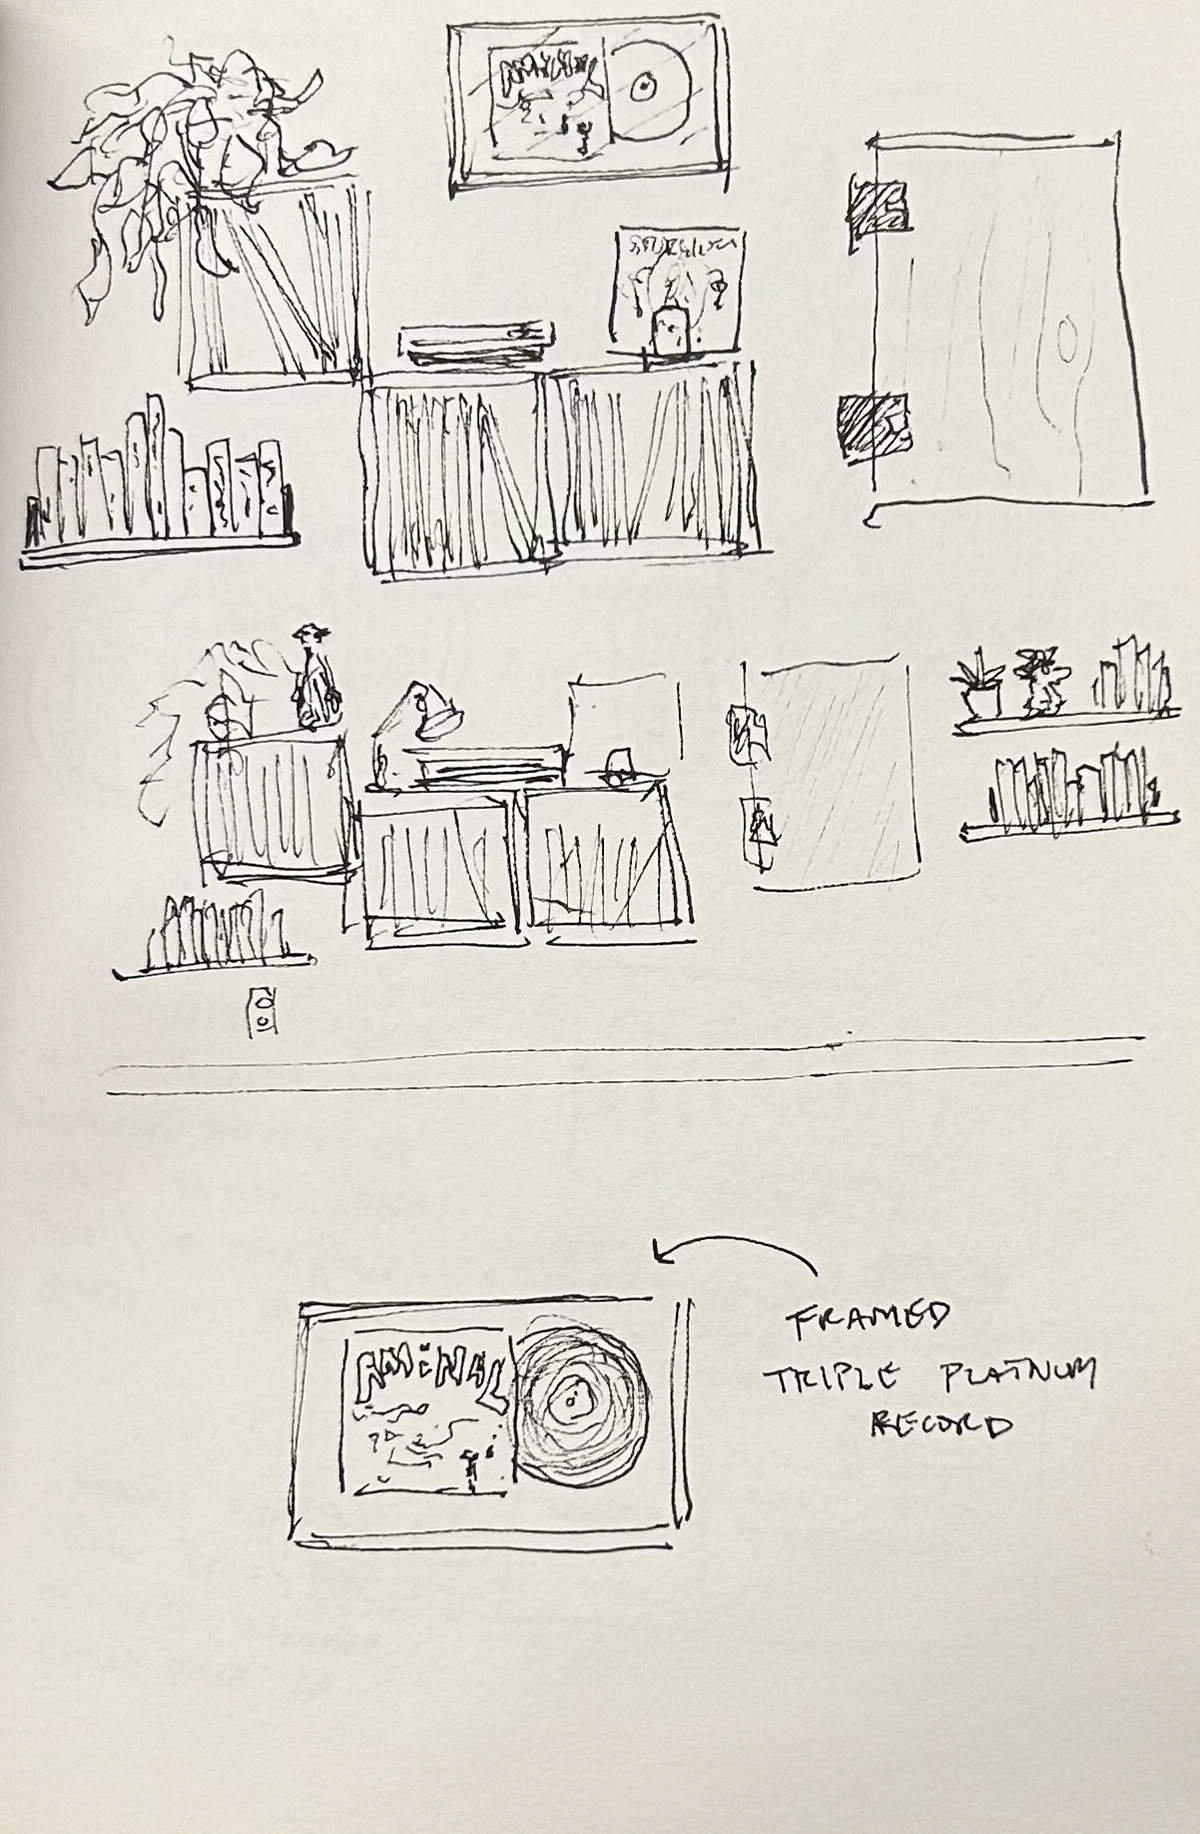 FRAMED
TRIPLE PLATNUM
RECORD
AMiNAL